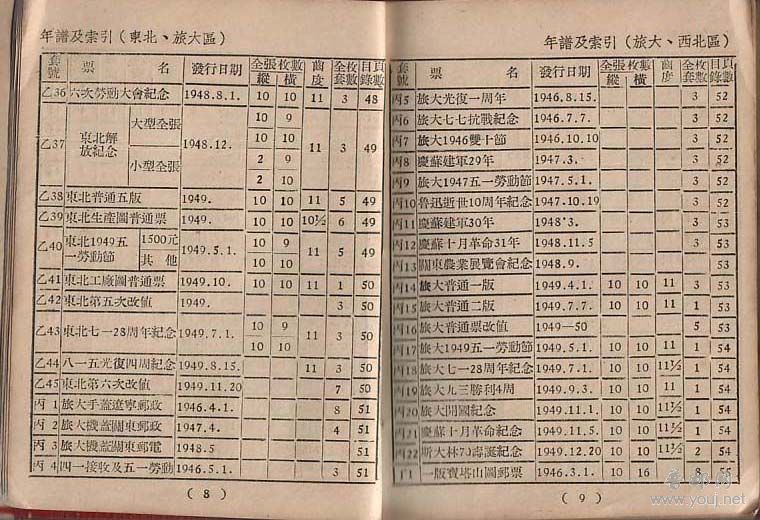 年譜及索引（東北、旅大區）
套號 票名 發行日期 全張枚數 縱 橫 齒度 全套枚數 目錄頁數
乙36 六次勞動大會紀念 1948.8.1. 10 10 11 3 48
乙37 東北解放紀念 大型全張 小型全張 1948.12. 10 9 10 10 2 9 2 10 11 3 49
乙38 東北普通五版 1949. 10 10 11 5 49
乙39 東北生產圖普通票 1949. 10 10 10½ 6 49
乙40 東北1949五一勞動節 1500元 其他 1949.5.1. 10 9 10 10 11 5 49
乙41 東北工廠圖普通票 1949.10. 10 10 11 1 50
乙42 東北第五次改値 1949. 3 50
乙43 東北七一28周年紀念 1949.7.1. 10 9 10 10 11 3 50
乙44 八一五光復四周紀念 1949.8.15. 11 3 50
乙45 東北第六次改値 1949.11.20 7 50
丙1 旅大手蓋遼寧郵政 1946.4.1. 8 51
丙2 旅大機蓋關東郵政 1947.4. 4 51
丙3 旅大機蓋關東郵電 1948.5 51
丙4 四一接收及五一勞動 1946.5.1. 3 51
(8)
年譜及索引（旅大、西北區）
套號 票名 發行日期 全張枚數 縱 橫 齒度 全套枚數 目錄頁數
丙5 旅大光復一周年 1946.8.15. 3 52
丙6 旅大七七抗戰紀念 1946.7.7. 3 52
丙7 旅大1946雙十節 1946.10.10 3 52
丙8 慶蘇建軍29年 1947.3. 3 52
丙9 旅大1947五一勞動節 1947.5.1. 3 52
丙10 魯迅逝世10周年紀念 1947.10.19 3 52
丙11 慶蘇建軍30年 1948.3. 3 53
丙12 慶蘇十月革命31年 1948.11.5 3 53
丙13 關東農業展覽會紀念 1948.9. 53
丙14 旅大普通一版 1949.4.1. 10 10 11 3 53
丙15 旅大普通二版 1949.7.7. 10 10 11 2 53
丙16 旅大普通票改値 1949—50 5 53
丙17 旅大1949五一勞動節 1949.5.1. 10 10 11 1 54
丙18 旅大七一28周年紀念 1949.7.1. 10 10 11½ 1 54
丙19 旅大九三勝利4周 1949.9.3. 10 10 11 1 54
丙20 旅大開國紀念 1949.11.1. 10 10 11½ 1 54
丙21 慶蘇十月革命紀念 1949.11.5. 10 10 11½ 1 54
丙22 斯大林70壽誕紀念 1949.12.20 10 10 11½ 2 54
丁1 一版寶塔山圖郵票 1946.3.1. 10 16 8 55
(9)
www.youj.net